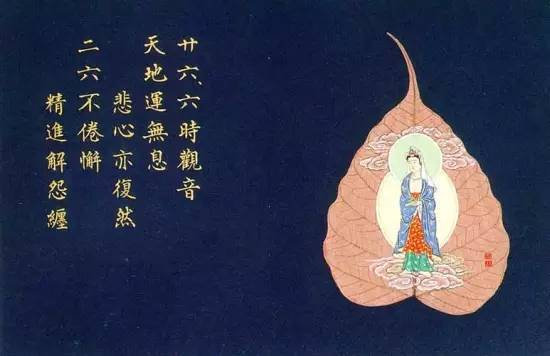 廿六、六時觀音
天地運無息
悲心亦復然
二六不倦懈
精進解怨纏